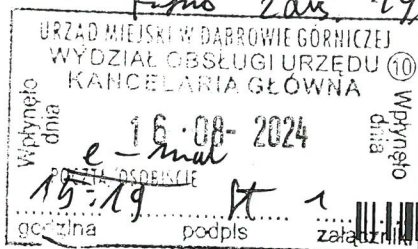 URZĄD MIEJSKI W DĄBROWIE GÓRNICZEJ
WYDZIAŁ OBSŁUGI URZĘDU 10
KANCELARIA GŁÓWNA
Wpłynęło dnia
16 -08- 2024
Wpłynęło dnia
e-mail
POCZTA/OSOBIŚCIE
15:19 1
godzina podpis załącznik